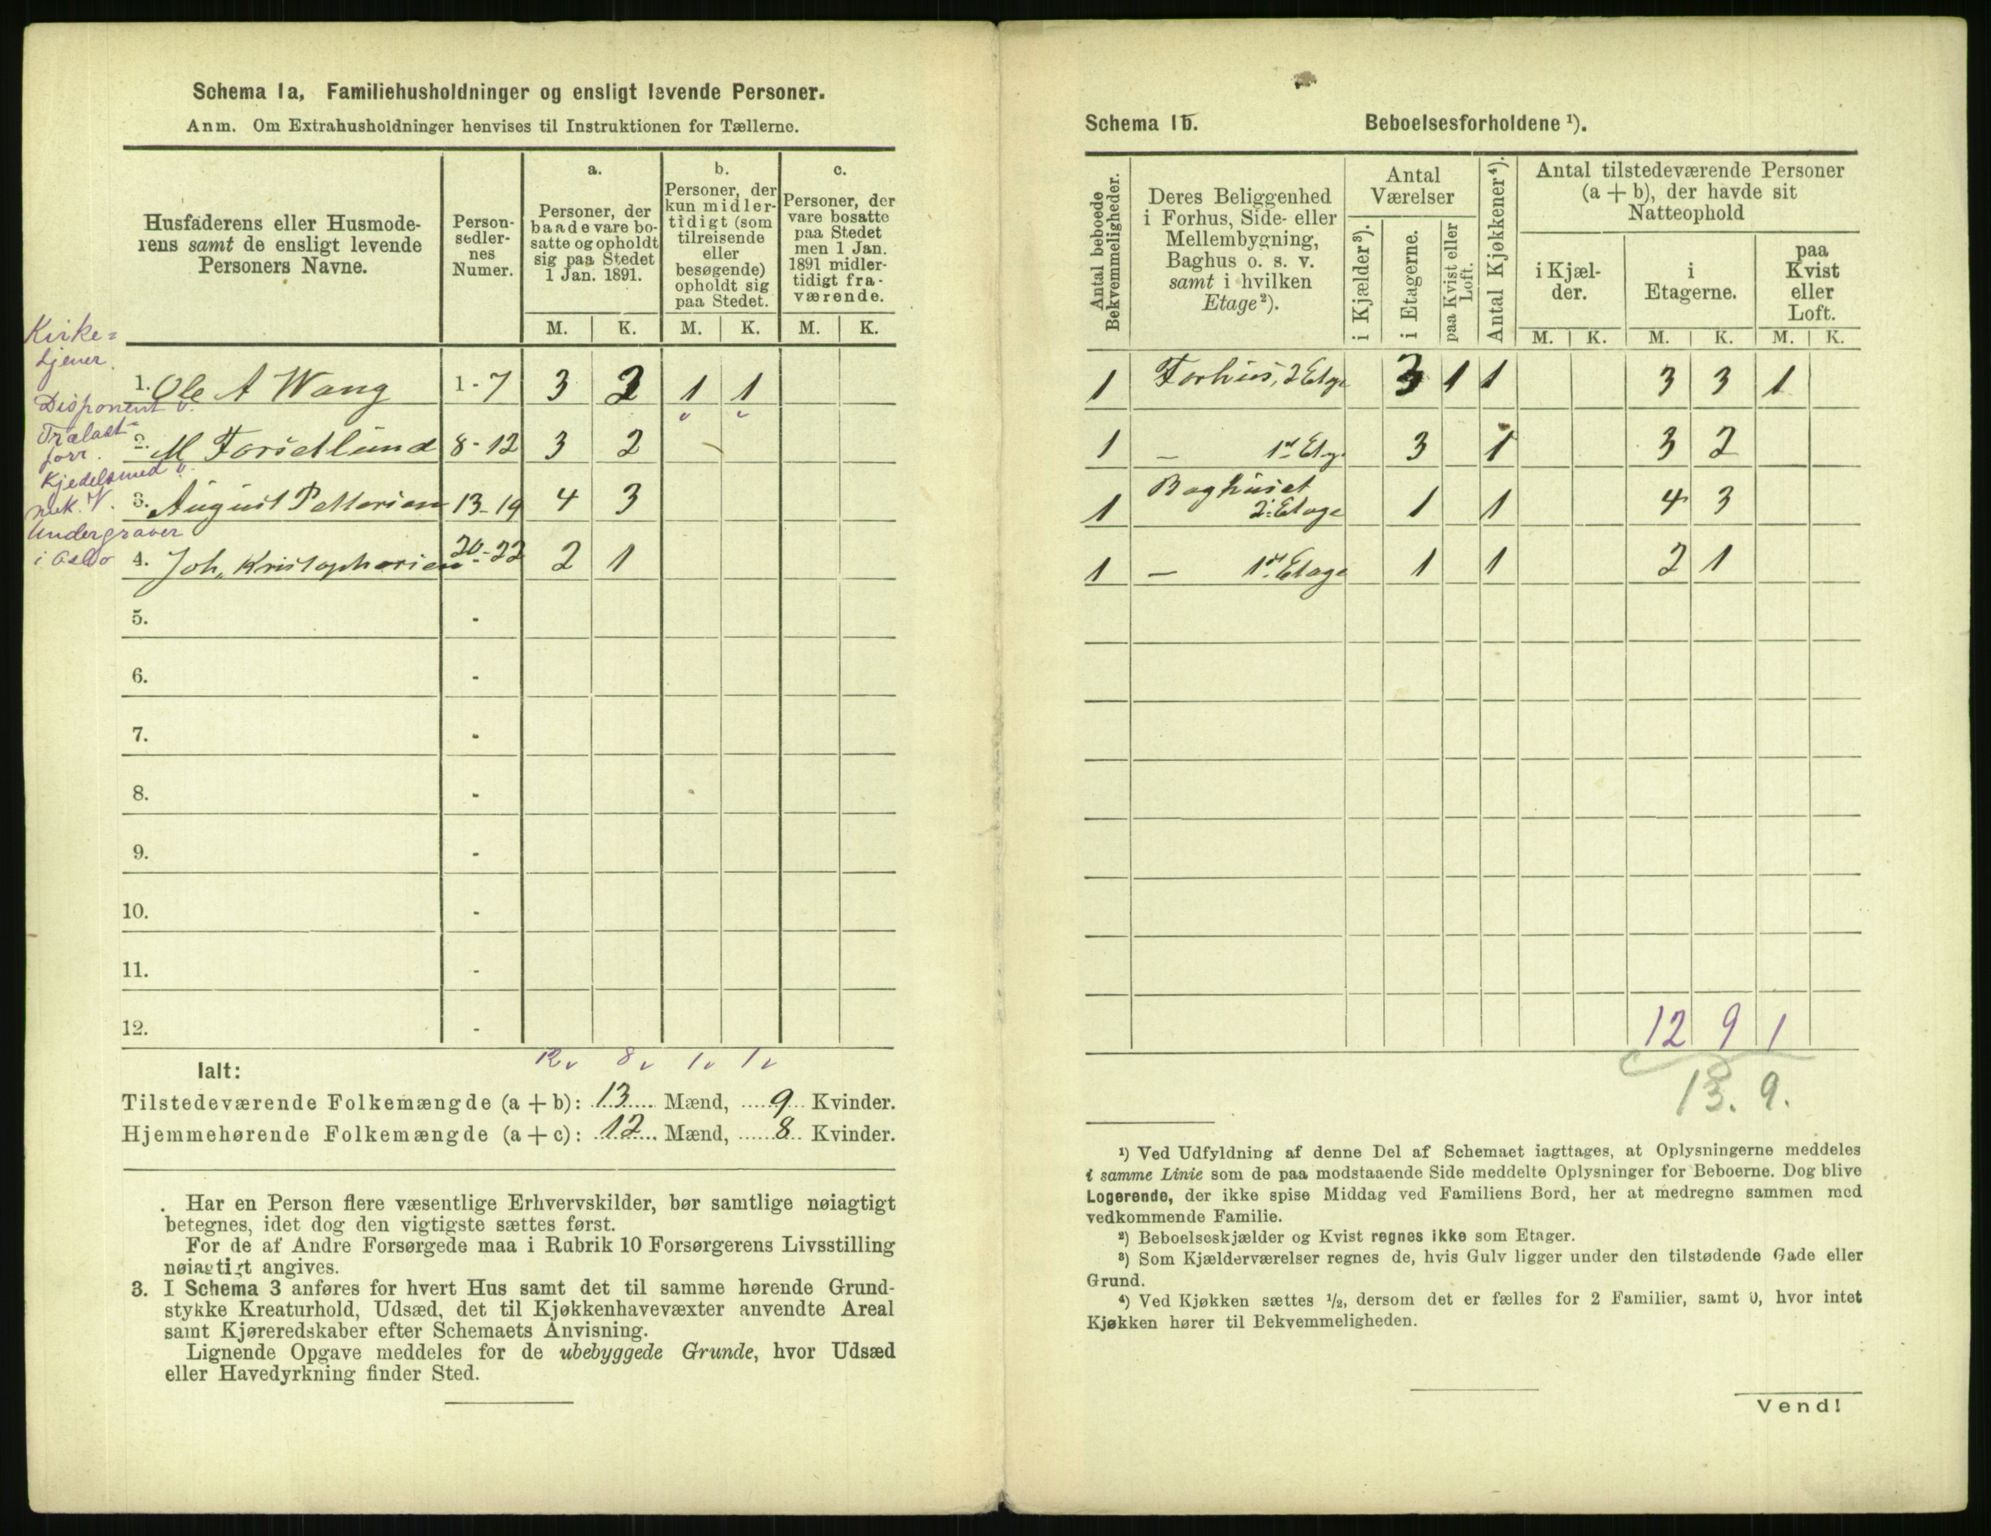 Schema 1a. Familiehusholdninger og ensligt levende Personer.
Anm. Om Extrahusholdninger henvises til Instruktionen for Tællerne.
Husfaderens eller Husmoderens samt de ensligt levende Personers Navne.
Personsedlernes Numer.
a.
Personer, der baade vare bosatte og opholdt sig paa Stedet 1 Jan. 1891.
b.
Personer, der kun midlertidigt (som tilreisende eller besøgende) opholdt sig paa Stedet.
c.
Personer, der vare bosatte paa Stedet men 1 Jan. 1891 midlertidigt fraværende.
M. K. M. K. M. K.
Kirke=
tjener.
1. Ole A Wang 1-7 3 2 1 1
Disponent v.
Trælast-
forr.
2. M Forsetlund 8-12 3 2
Kjedelsmed v.
mek. V.
3. August Pettersen 13-19 4 3
Undergraver
i Oslo
4. Joh. Kristophersen 20-22 2 1
5. -
6. -
7. -
8. -
9. -
10. -
11. -
12. -
12 8 1 1
Ialt:
Tilstedeværende Folkemængde (a + b): 13 Mænd, 9 Kvinder.
Hjemmehørende Folkemængde (a + c): 12 Mænd, 8 Kvinder.
Har en Person flere væsentlige Erhvervskilder, bør samtlige nøiagtigt
betegnes, idet dog den vigtigste sættes først.
For de af Andre Forsørgede maa i Rubrik 10 Forsørgerens Livsstilling
nøiagtigt angives.
3. I Schema 3 anføres for hvert Hus samt det til samme hørende Grund-
stykke Kreaturhold, Udsæd, det til Kjøkkenhavevæxter anvendte Areal
samt Kjøreredskaber efter Schemaets Anvisning.
Lignende Opgave meddeles for de ubebyggede Grunde, hvor Udsæd
eller Havedyrkning finder Sted.
Schema 1b. Beboelsesforholdene ¹).
Antal beboede Bekvemmeligheder.
Deres Beliggenhed i Forhus, Side- eller Mellembygning, Baghus o. s. v. samt i hvilken Etage²).
Antal Værelser
i Kjælder³).
i Etagerne.
paa Kvist eller Loft.
Antal Kjøkkener⁴).
Antal tilstedeværende Personer (a + b), der havde sit Natteophold
i Kjælder.
i Etagerne.
paa Kvist eller Loft.
M. K. M. K. M. K.
1 Forhus, 2 Etage 3 1 1 3 3 1
1 — 1st Etg. 3 1 3 2
1 Baghuset 2. Etage 1 1 4 3
1 — 1st Etage 1 1 2 1
12 9 1
13. 9.
¹) Ved Udfyldning af denne Del af Schemaet iagttages, at Oplysningerne meddeles
i samme Linie som de paa modstaaende Side meddelte Oplysninger for Beboerne. Dog blive
Logerende, der ikke spise Middag ved Familiens Bord, her at medregne sammen med
vedkommende Familie.
²) Beboelseskjælder og Kvist regnes ikke som Etager.
³) Som Kjælderværelser regnes de, hvis Gulv ligger under den tilstødende Gade eller
Grund.
⁴) Ved Kjøkken sættes ½, dersom det er fælles for 2 Familier, samt 0, hvor intet
Kjøkken hører til Bekvemmeligheden.
Vend!